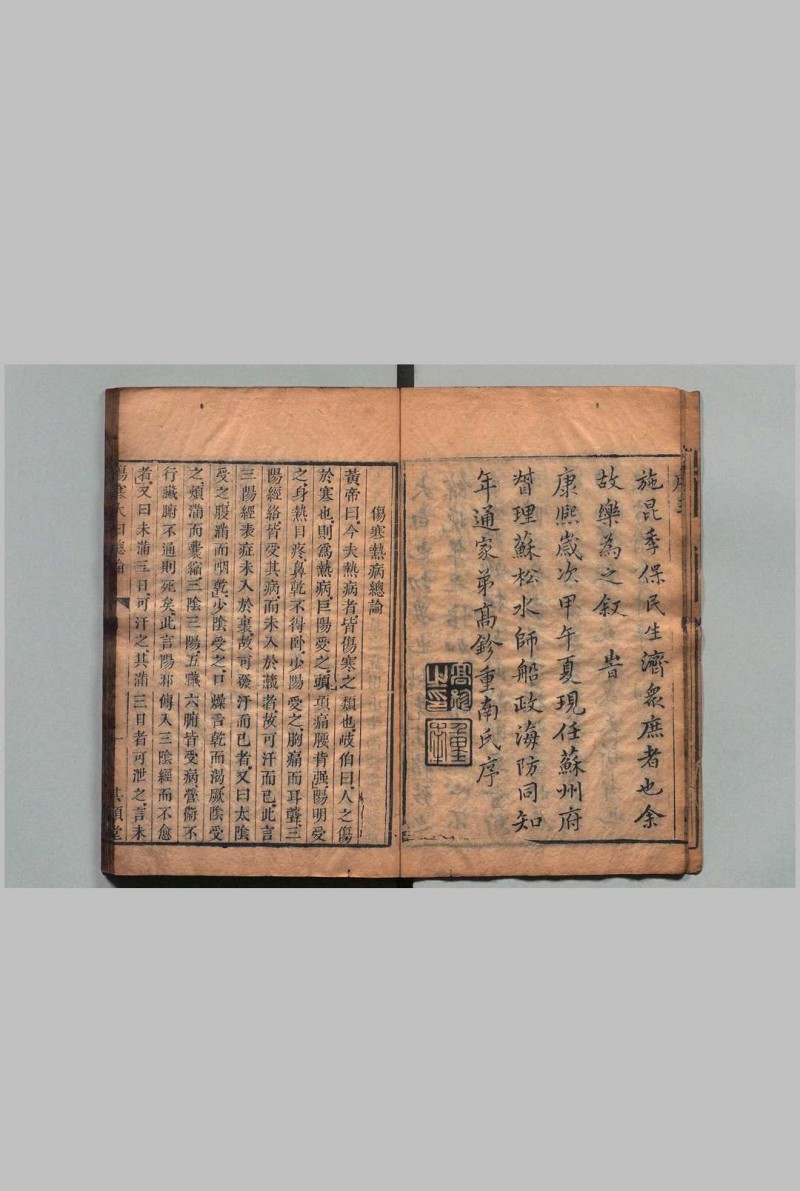 施昆季保民生濟衆庶者也余
故樂為之叙　旹
康熙歲次甲午夏現任蘇州府
督理蘇松水師船政海防同知
年通家弟髙鈐重南氏序
傷寒熱病總論
黃帝曰今夫熱病者皆傷寒之類也岐伯曰人之傷
於寒也則爲熱病巨陽受之頭項痛腰脊强陽明受
之身熱目疼鼻乾不得卧少陽受之胸痛而耳聾三
陽經絡皆受其病而未入於藏者故可汗而已此言
三陽經表症未入於裏故可發汗而已者又曰太陰
受之腹滿而咽乾少陰受之口燥舌乾而渴厥陰受
之煩滿而囊縮三陰三陽五臟六腑皆受病營衞不
行臟腑不通則死矣此言陽邪傳入三陰經而不愈
者又曰未滿三日可汗之其滿三日者可泄之言未
傷寒大白總論
其順堂